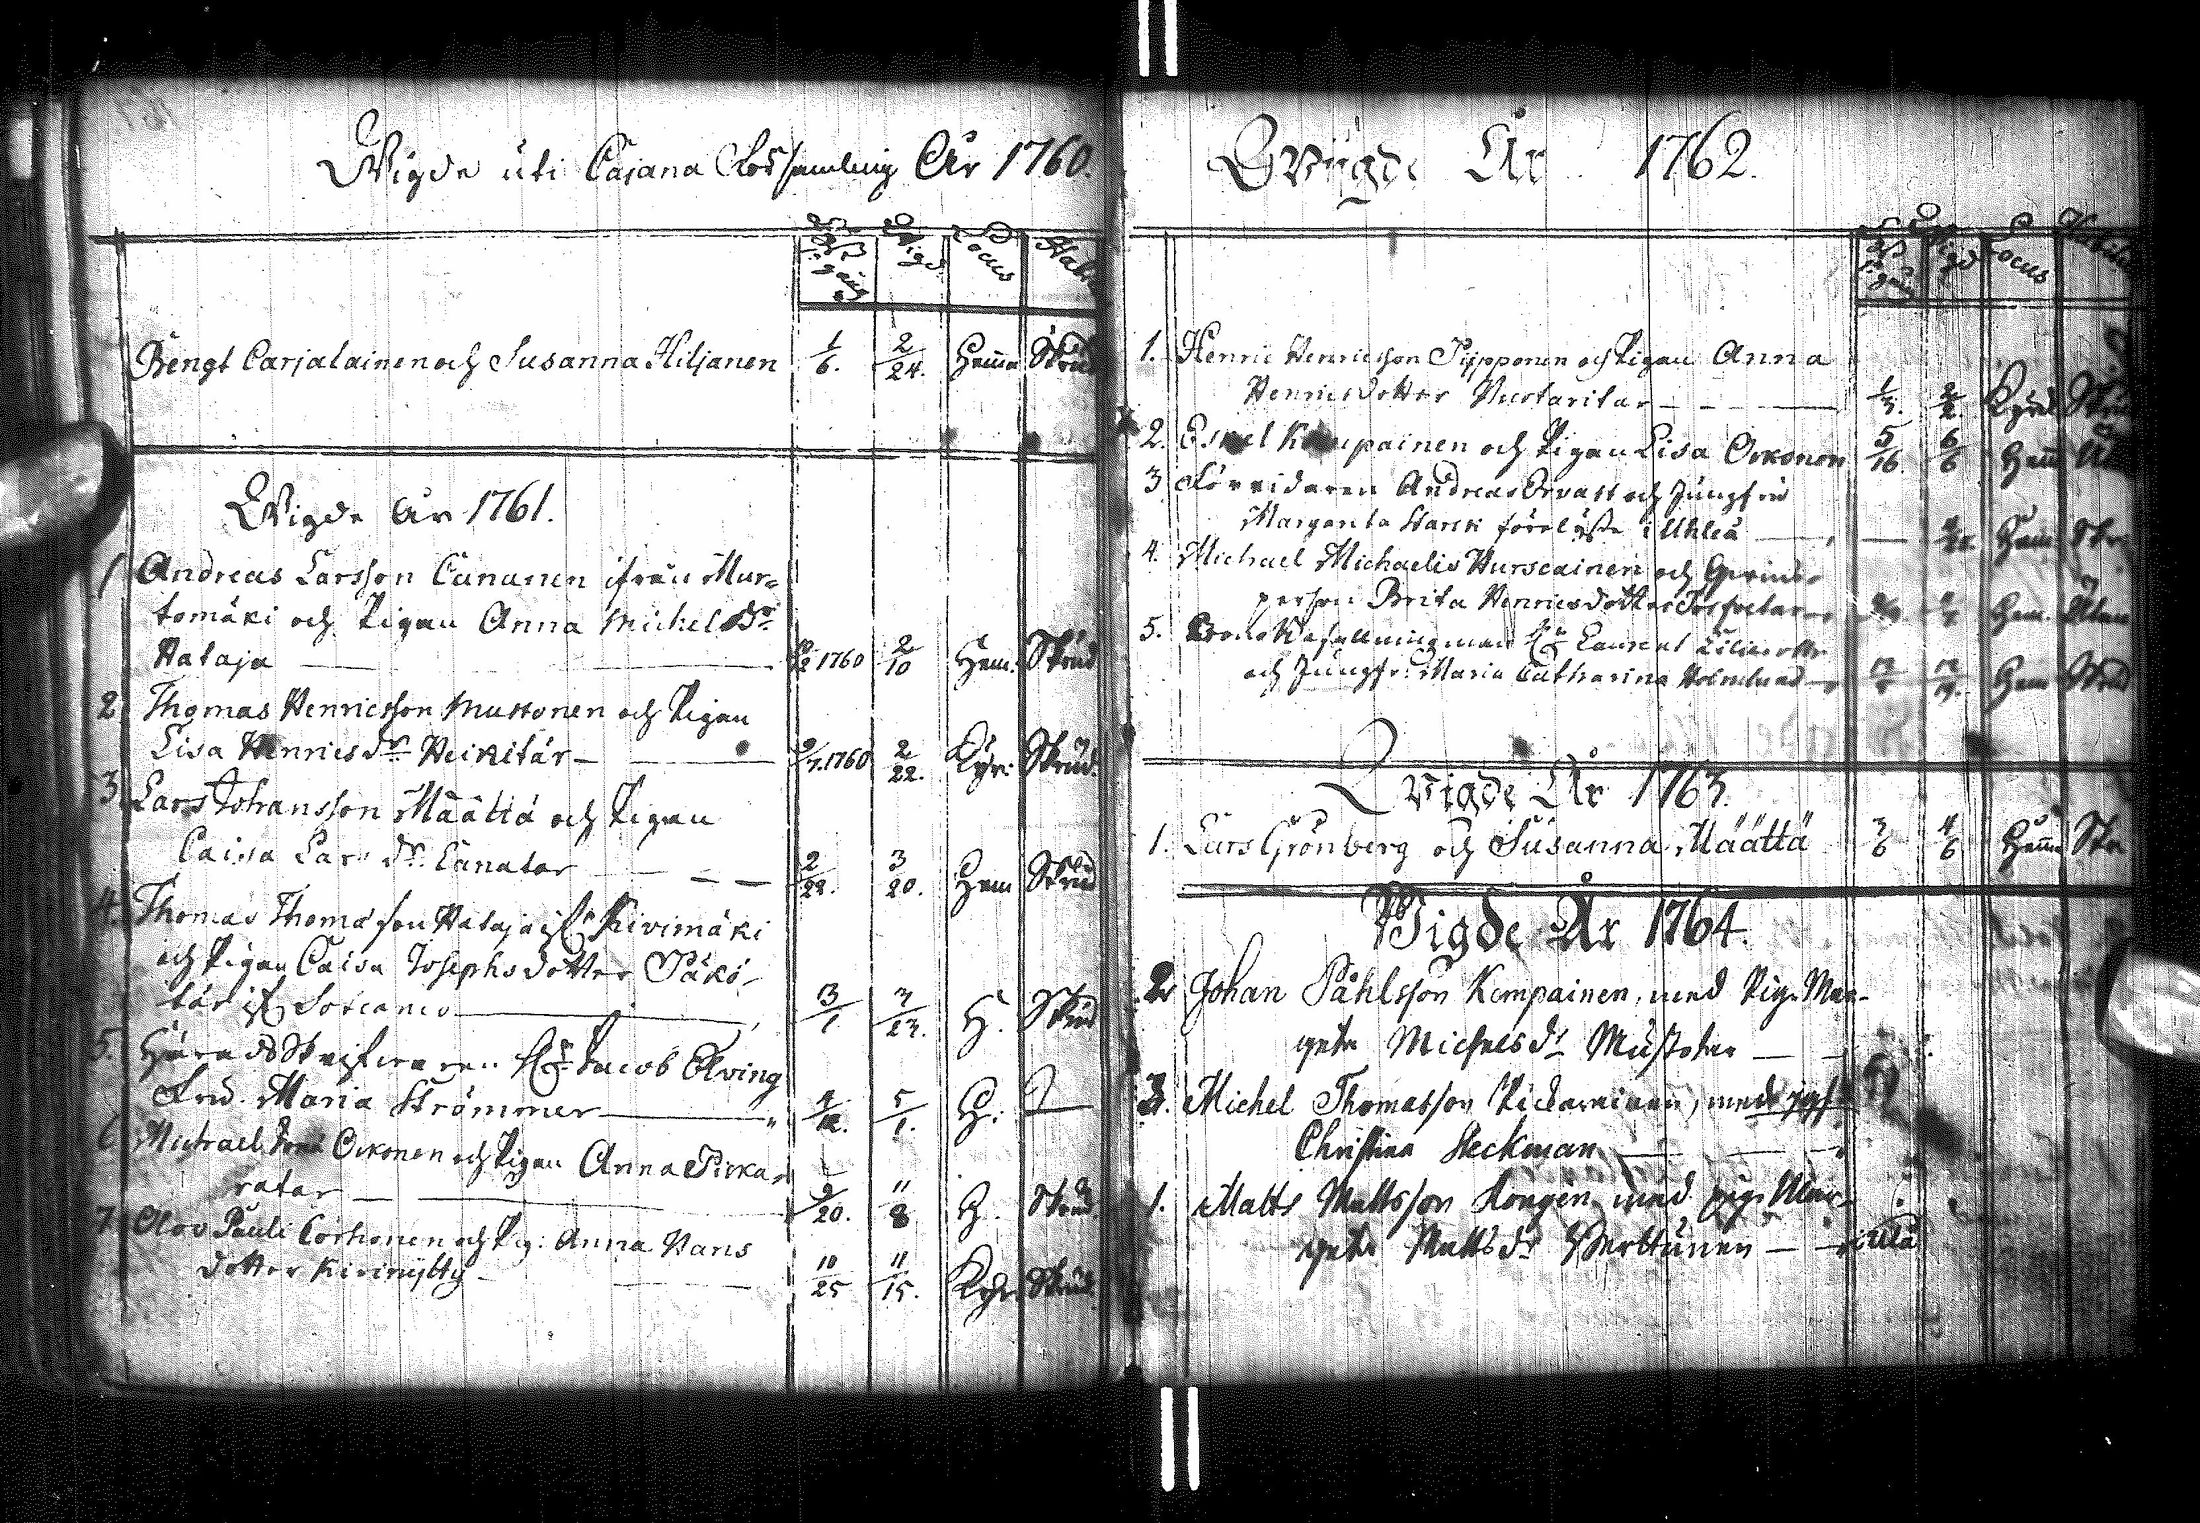 Wigde uti Cajana Församling År 1760.
Lysning Wigd Locus Habit
Bengt Carjalainen och Susanna Hiljanen 1/6. 2/24. Hemma Skrud
Wigde År 1761.
1 Andreas Larsson Cananen ifrån Mur-
tomäki och Pigan Anna Michels Dr
Hataja 1760 2/10 Hem. Skrud
2 Thomas Henricsson Mustonen och Pigan
Lisa Henrics dr Heikitär 1760 2/22. Kyrk: Skrud.
3 Lars Johansson Määttä och Pigan
Caisa Lars dr Canatar 2/22. 3/20. Hem Skrud
4. Thomas Thomasson Hataja ifr. Kivimäki
och Pigan Caisa Josephsdotter Säkö-
tär ifr. Sotcamo 3/1 H. Skrud
5. Häradsskrifvaren Hr Jacob Elving
Fru Maria Strömmer 5/1. H.
6. Michael Ockonen och Pigan Anna Picka-
ratar 9/20. 11/8 H. Skrud.
7. Olov Pauli Corhonen och Pig: Anna Hans
dotter Kirinylty 10/25 11/15. Kyrk Skrud.
Wigde År 1762.
Lysning Wigd Locus Habitus
1. Henric Henricsson Piipponen och Pigan Anna
Henricsdotter Vuotaritar Kyrk
2. Eskel Kempainen och Pigan Lisa Ockonen 5/16. 6/6 Hem
3 Förridaren Andreas Orvast och Jungfru
Margareta Starck förelyste i Uhleå Hem
4. Michael Michaelis Hurscainen och Qvins-
person Brita Henricsdotter Hem.
5. Krono Befallningsman Hr Laurent
och Jungfr: Maria Catharina Hem Skrud
Wigde År 1763.
1. Lars Grönberg och Susanna Määttä 3/6 4/6 Hemma
Wigde År 1764.
2. Johan Påhlsson Kempainen, med Pig. Mar-
geta Michelsdr Mustotar
3. Michel Thomasson Pickarainen, med jgf.
Christina Heckman
1. Matts Mattsson med pig. Mar-
geta Mattsdr Werttunen